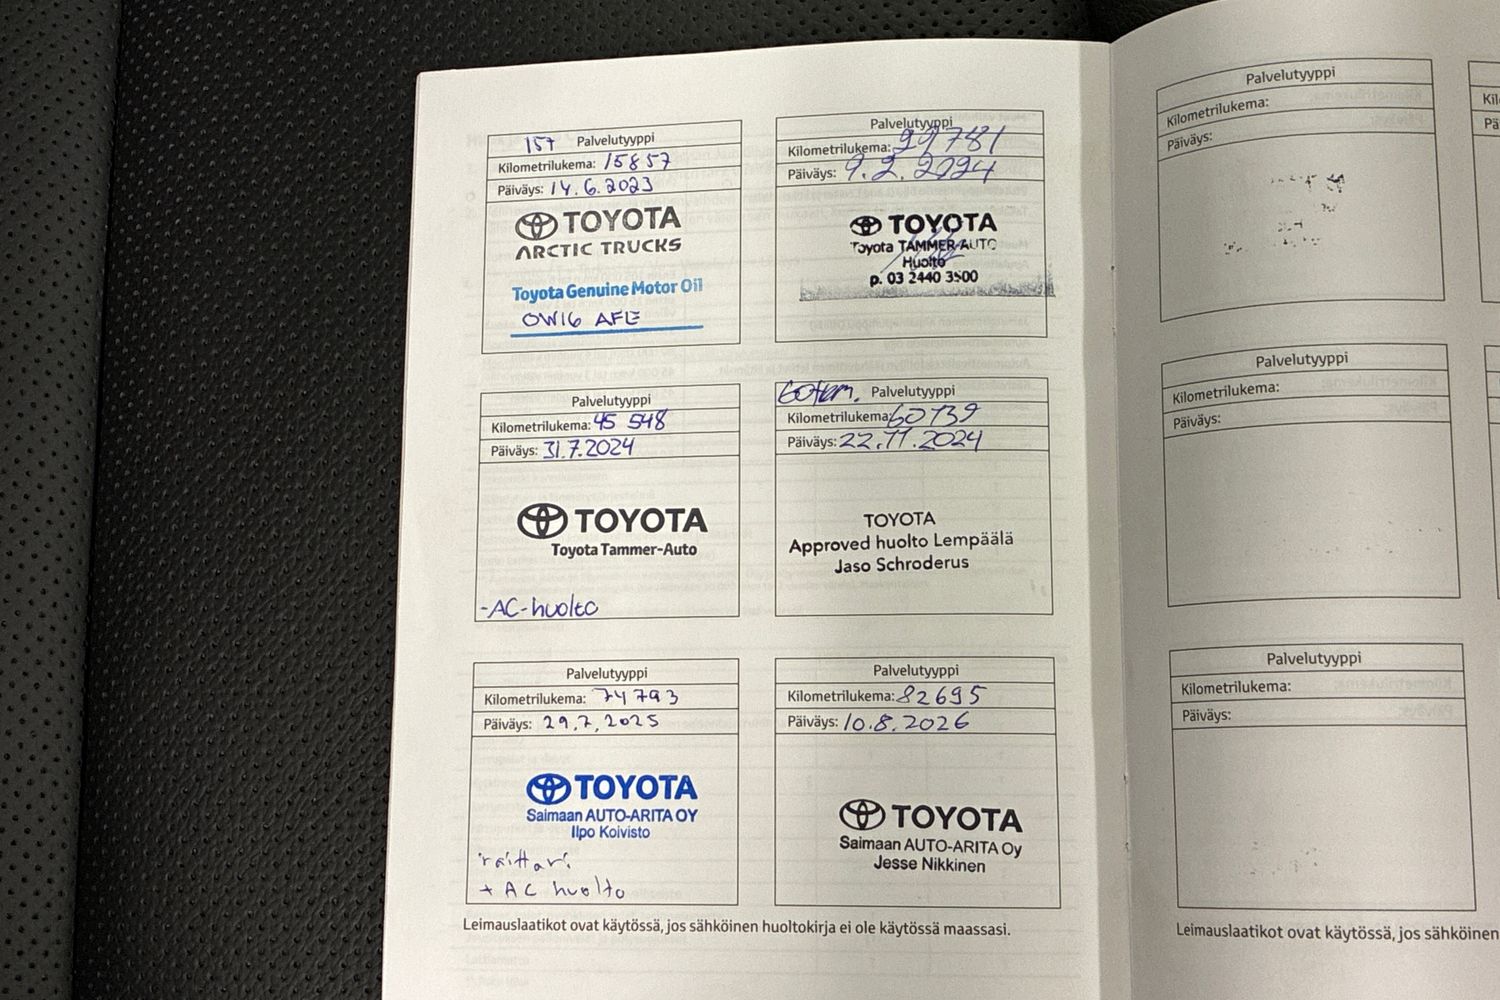 15T Palvelutyyppi
Kilometrilukema: 15857
Päiväys: 14.6.2023
TOYOTA
ARCTIC TRUCKS
Toyota Genuine Motor Oil
OW16 AFE
Palvelutyyppi
Kilometrilukema: 29781
Päiväys: 9.2.2024
TOYOTA
Toyota TAMMER-AUTO
Huolto
p. 03 2440 3500
Palvelutyyppi
Kilometrilukema: 45 548
Päiväys: 31.7.2024
TOYOTA
Toyota Tammer-Auto
-AC-huolto
60tkm. Palvelutyyppi
Kilometrilukema: 60139
Päiväys: 22.11.2024
TOYOTA
Approved huolto Lempäälä
Jaso Schroderus
Palvelutyyppi
Kilometrilukema: 74793
Päiväys: 29.7.2025
TOYOTA
Saimaan AUTO-ARITA OY
Ilpo Koivisto
+ AC huolto
Palvelutyyppi
Kilometrilukema: 82695
Päiväys: 10.8.2026
TOYOTA
Saimaan AUTO-ARITA Oy
Jesse Nikkinen
Leimauslaatikot ovat käytössä, jos sähköinen huoltokirja ei ole käytössä maassasi.
Palvelutyyppi
Kilometrilukema:
Päiväys:
Palvelutyyppi
Kilometrilukema:
Päiväys:
Palvelutyyppi
Kilometrilukema:
Päiväys:
Leimauslaatikot ovat käytössä, jos sähköinen
Kil
Pä